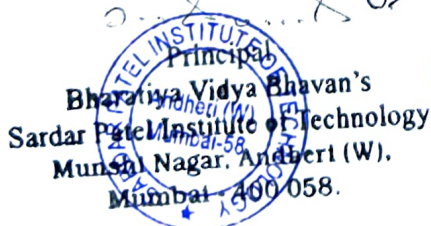 Principal
Bharatiya Vidya Bhavan's
Sardar Patel Institute of Technology
Munshi Nagar, Andheri (W),
Mumbai - 400 058.
SARDAR PATEL INSTITUTE OF TECHNOLOGY
Andheri (W)
Mumbai-58